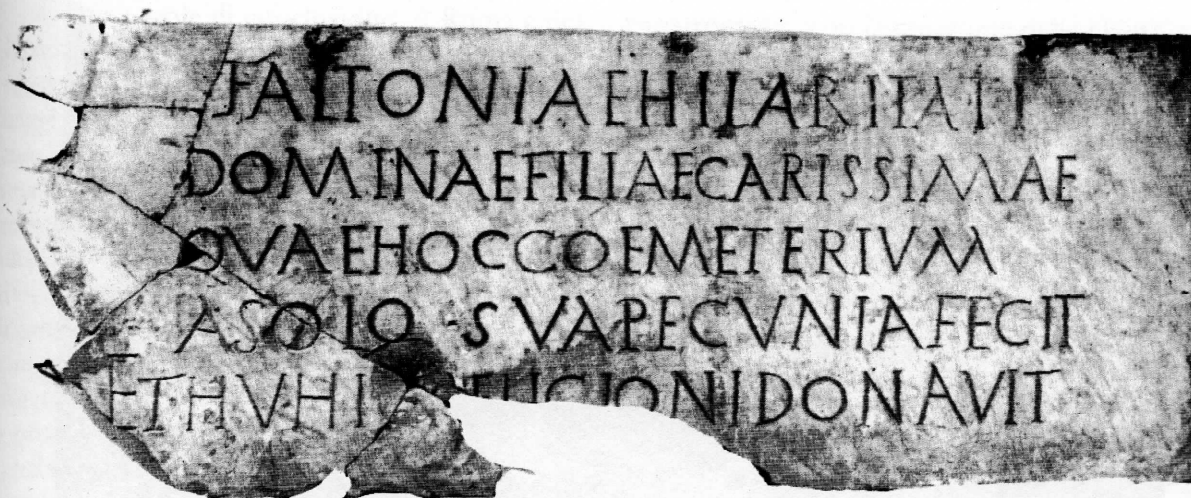 FALTONIAE HILARITATI
DOMINAE FILIAE CARISSIMAE
QVAE HOC COEMETERIVM
A SOLO SVA PECVNIA FECIT
ET HVHI LIGIONI DONAVIT